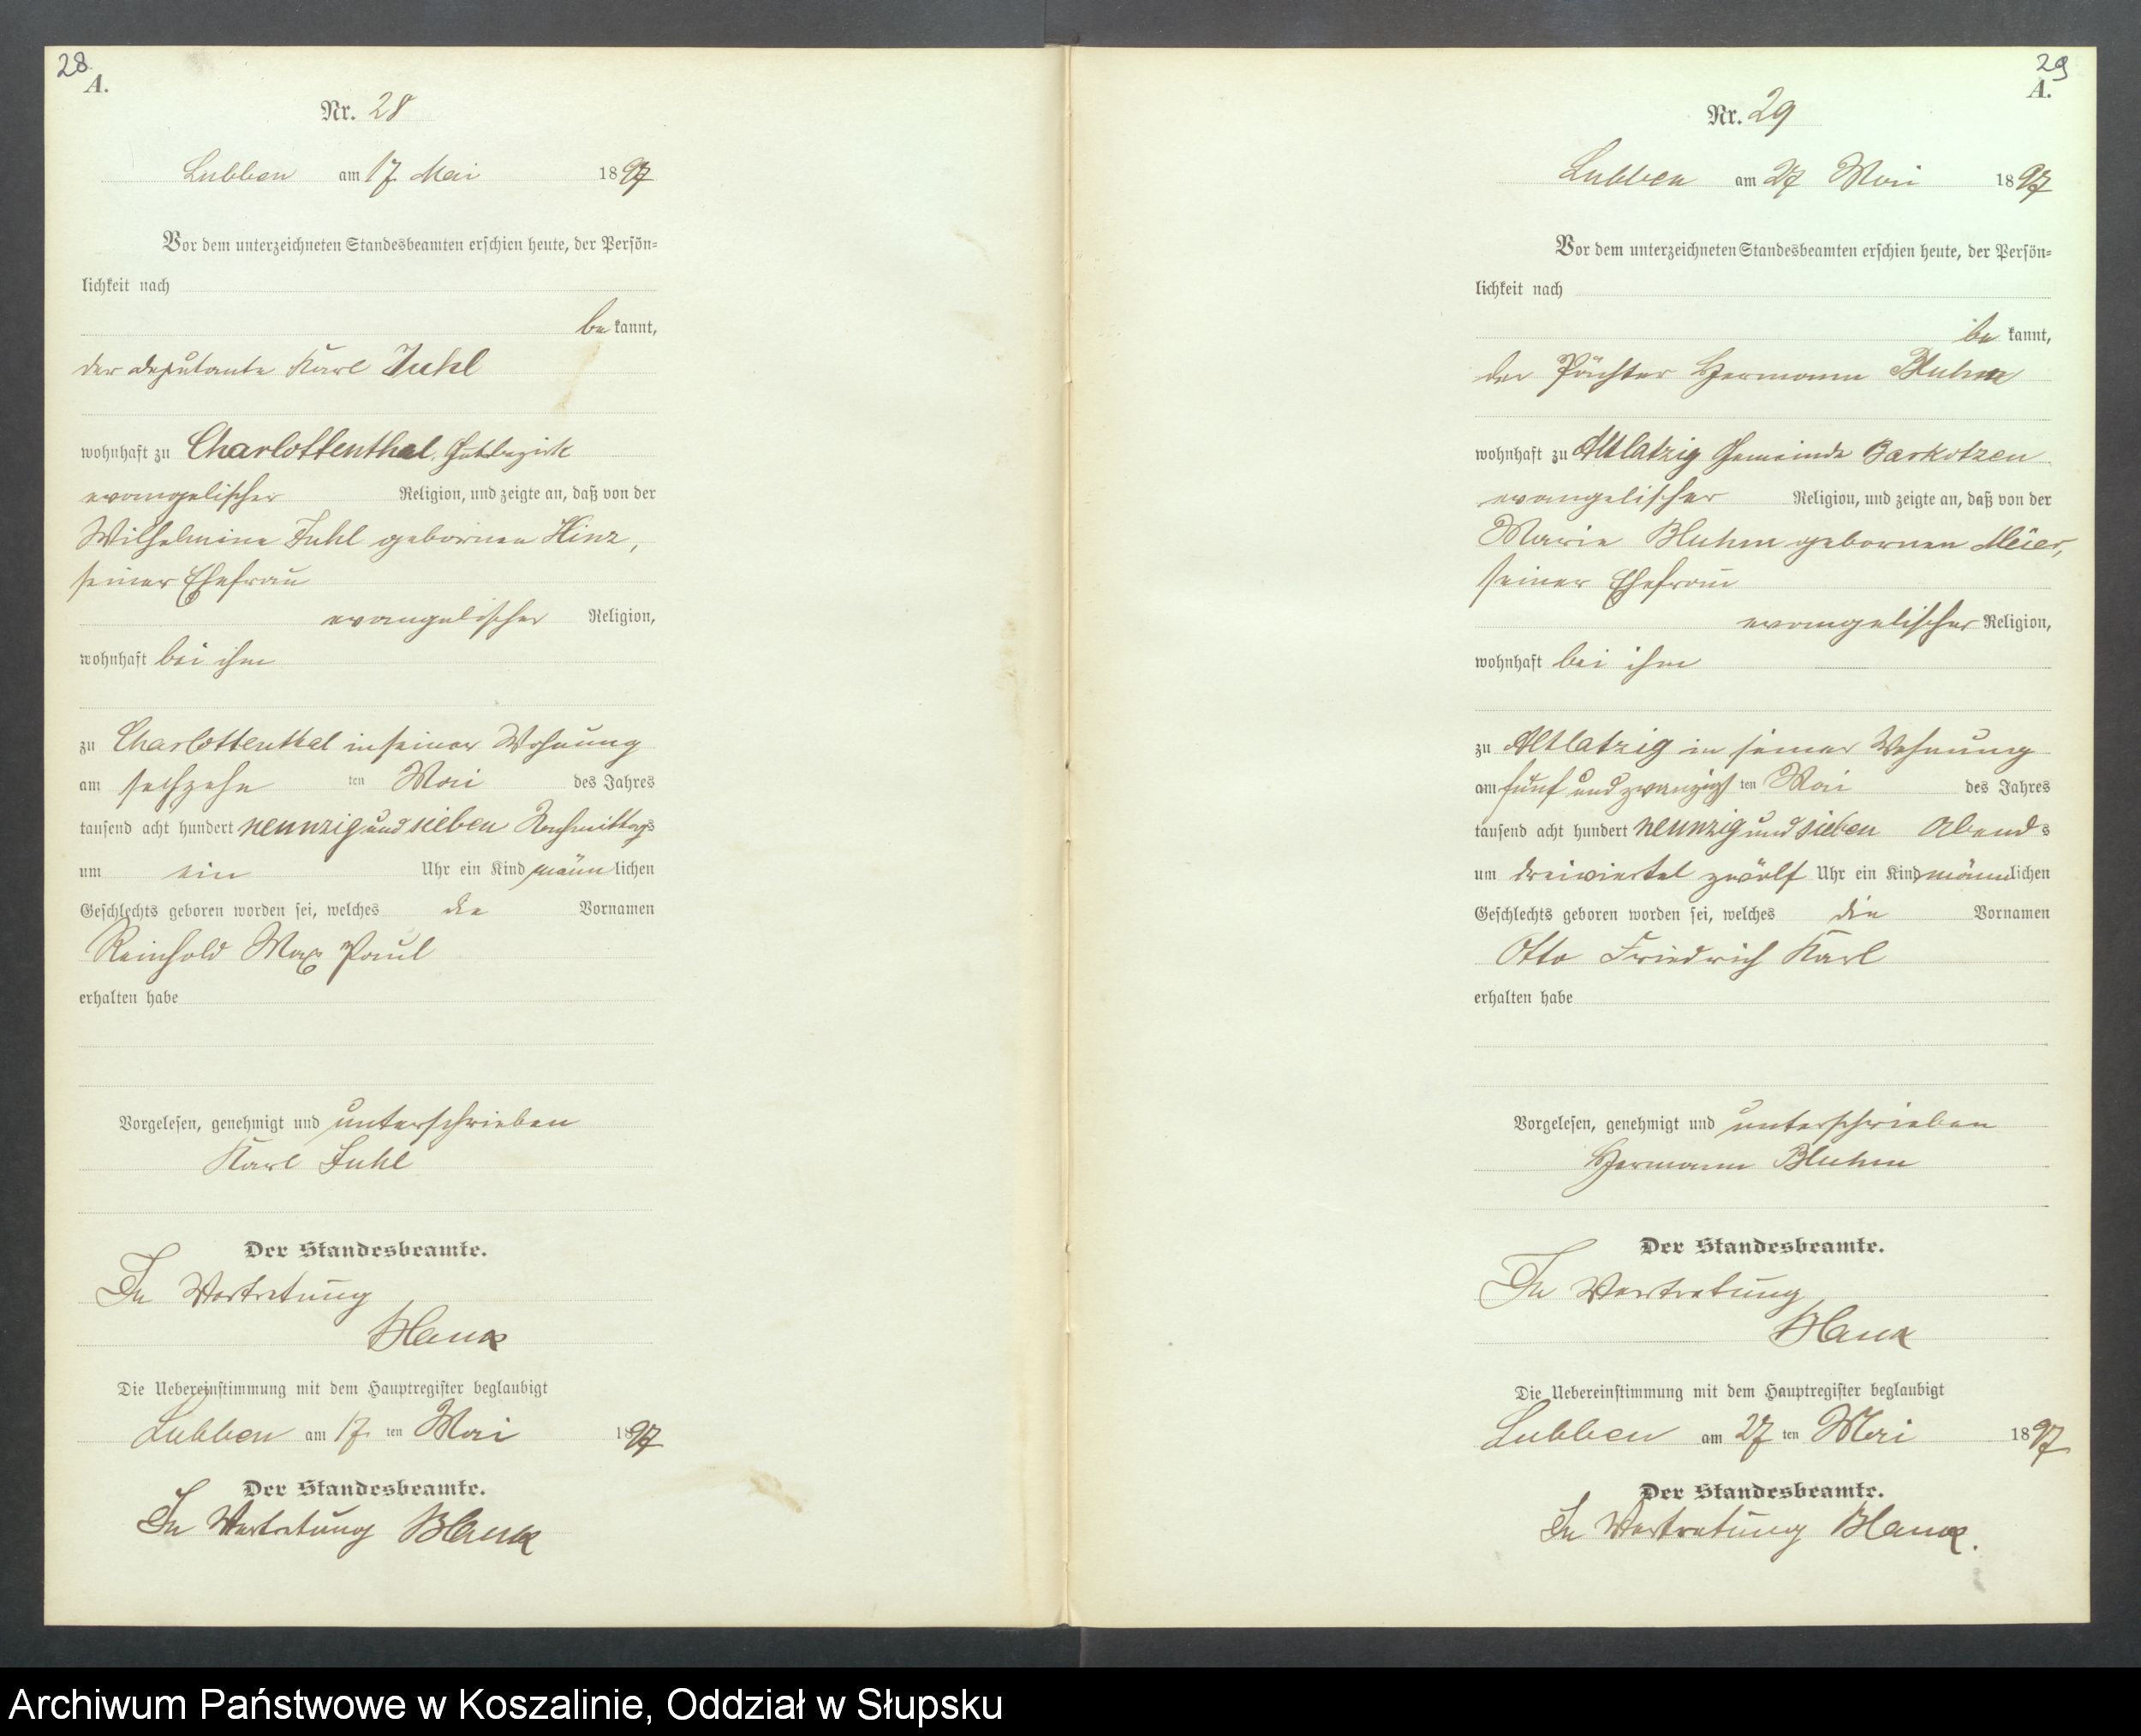 28
A.
Nr. 28
Lubben am 17. Mai 1897
Vor dem unterzeichneten Standesbeamten erschien heute, der Persön-
lichkeit nach
be kannt,
der Deputante Karl Juhl
wohnhaft zu Charlottenthal, Gutsbezirk
evangelischer Religion, und zeigte an, daß von der
Wilhelmine Juhl gebornen Hinz,
seiner Ehefrau
evangelischer Religion,
wohnhaft bei ihm
zu Charlottenthal in seiner Wohnung
am sechzehn ten Mai des Jahres
tausend acht hundert neunzig und sieben Nachmittags
um ein Uhr ein Kind männlichen
Geschlechts geboren worden sei, welches die Vornamen
Reinhold Max Paul
erhalten habe
Vorgelesen, genehmigt und unterschrieben
Karl Juhl
Der Standesbeamte.
In Vertretung
Blank
Die Uebereinstimmung mit dem Hauptregister beglaubigt
Lubben am 17. ten Mai 1897
Der Standesbeamte.
In Vertretung Blank
29
A.
Nr. 29
Lubben am 27 Mai 1897
Vor dem unterzeichneten Standesbeamten erschien heute, der Persön-
lichkeit nach
be kannt,
der Pächter Hermann Bluhm
wohnhaft zu Altlatzig Gemeinde Barkotzen
evangelischer Religion, und zeigte an, daß von der
Marie Bluhm gebornen Meier,
seiner Ehefrau
evangelischer Religion,
wohnhaft bei ihm
zu Altlatzig in seiner Wohnung
am fünf und zwanzigs ten Mai des Jahres
tausend acht hundert neunzig und sieben Abends
um dreiviertel zwölf Uhr ein Kind männlichen
Geschlechts geboren worden sei, welches die Vornamen
Otto Friedrich Karl
erhalten habe
Vorgelesen, genehmigt und unterschrieben
Hermann Bluhm
Der Standesbeamte.
In Vertretung
Blank
Die Uebereinstimmung mit dem Hauptregister beglaubigt
Lubben am 27 ten Mai 1897
Der Standesbeamte.
In Vertretung Blank.
Archiwum Państwowe w Koszalinie, Oddział w Słupsku